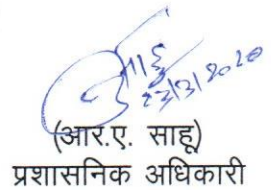 साहू
23/3/2020
(आर.ए. साहू)
प्रशासनिक अधिकारी